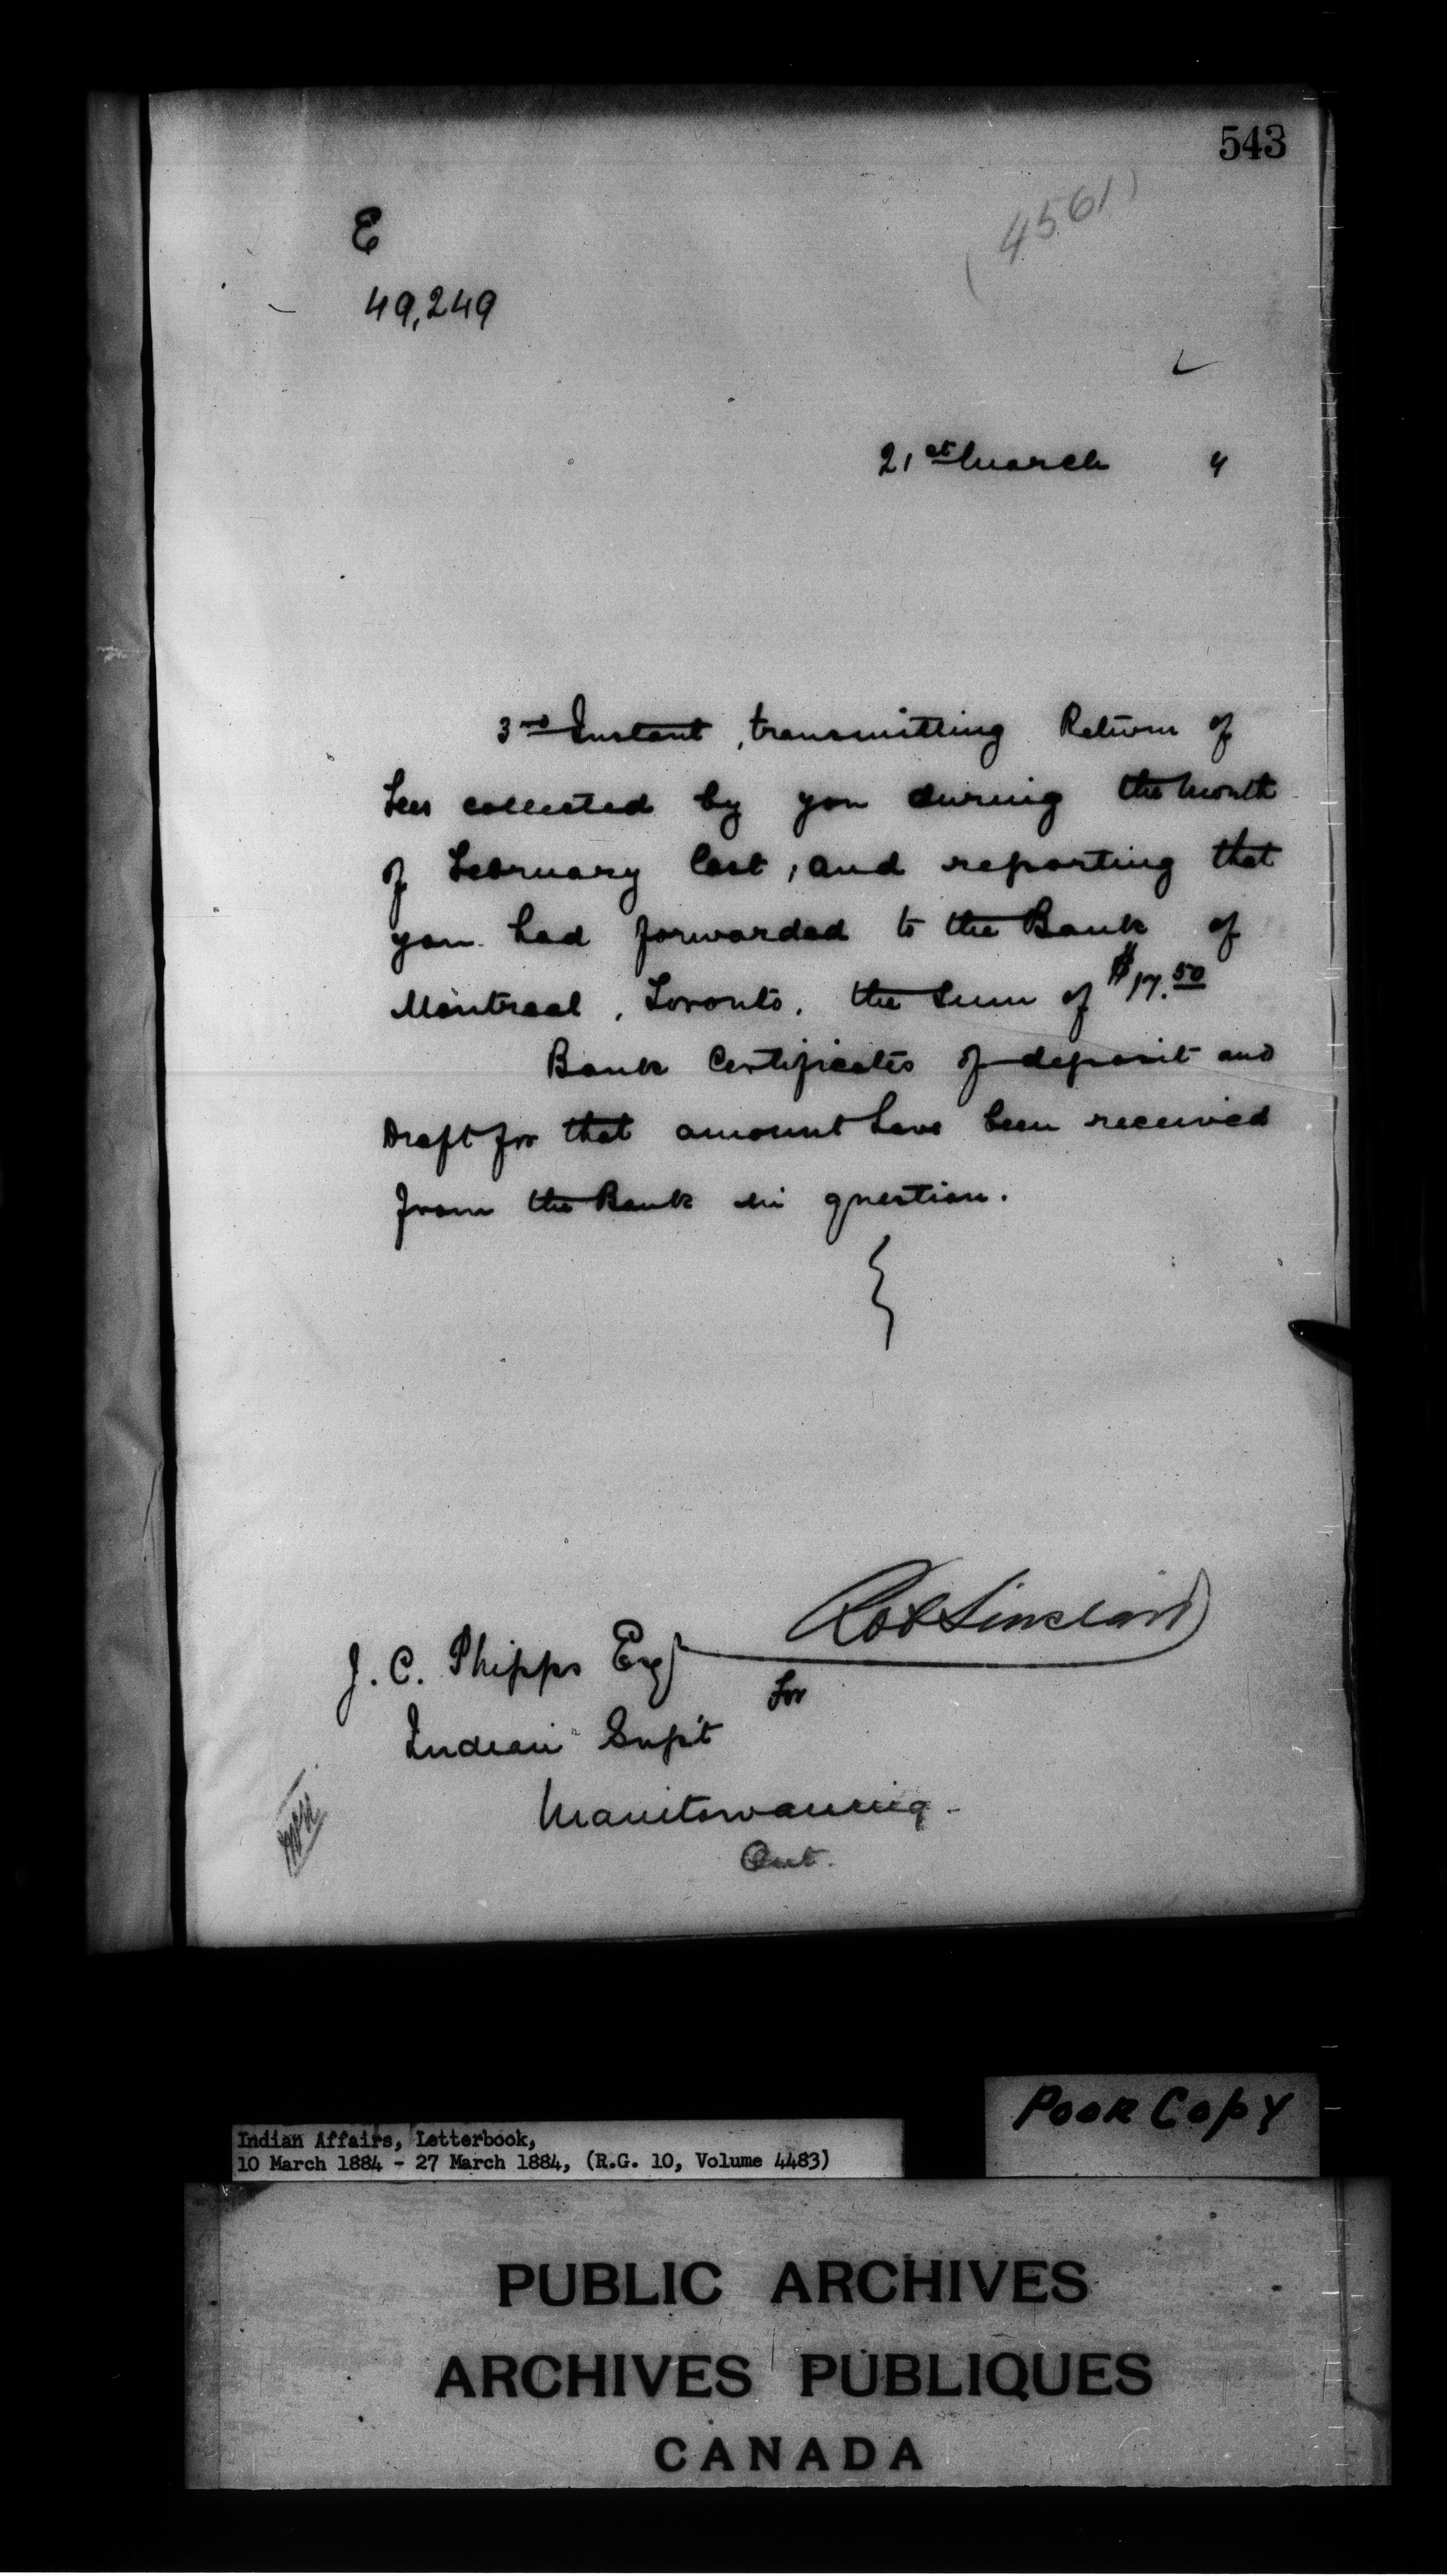 543
(4561)
E
49,249
21st March 4
3rd Instant, transmitting Return of
Fees collected by you during the Month
of February last, and reporting that
you had forwarded to the Bank of
Montreal, Toronto, the Sum of $17.50
Bank Certificates of deposit and
Draft for that amount have been received
from the Bank in question.
Rob Sinclair
J. C. Phipps Esq
For
Indian Supt
Manitowaning.
Ont.
Poor Copy
Indian Affairs, Letterbook,
10 March 1884 - 27 March 1884, (R.G. 10, Volume 4483)
PUBLIC ARCHIVES
ARCHIVES PUBLIQUES
CANADA